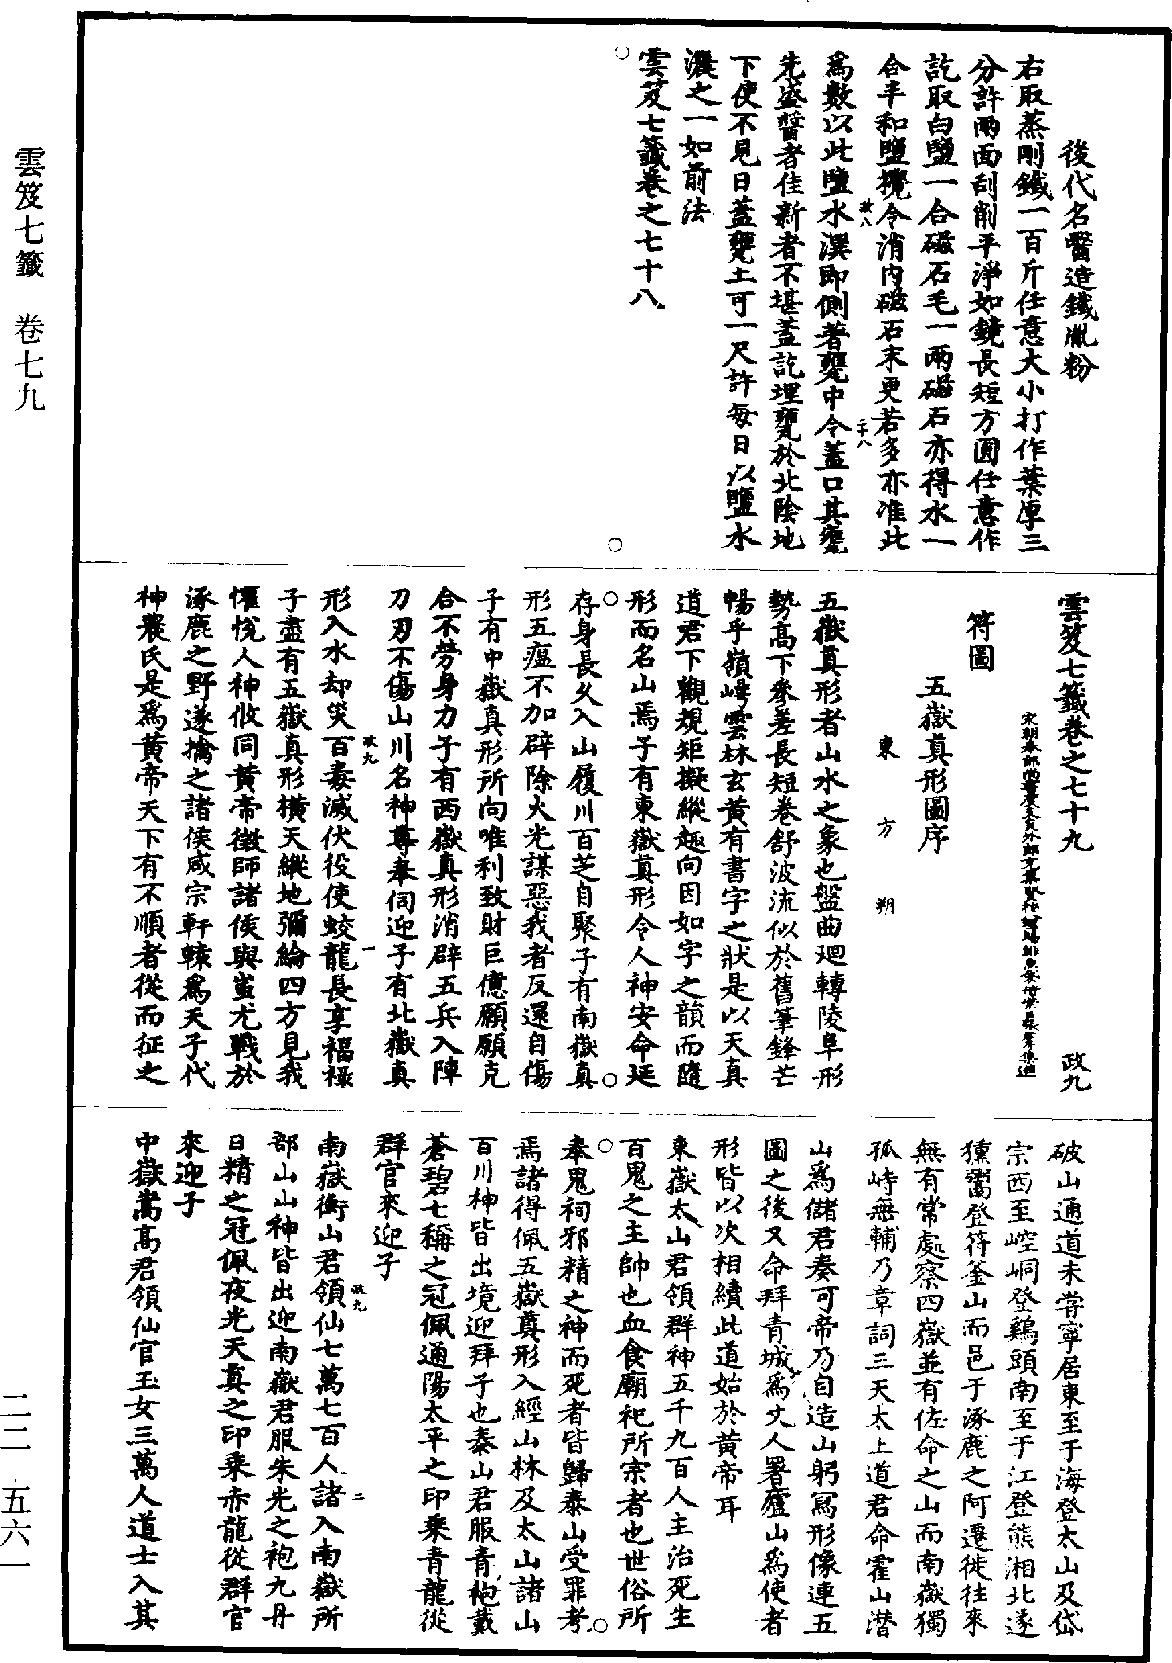 雲笈七籤　卷七九
後代名醫造鐵胤粉
右取蒸剛鐵一百斤任意大小打作葉厚三
分許兩面刮削平淨如鏡長短方圓任意作
訖取白鹽一合磁石毛一兩磁石亦得水一
合半和鹽攪令消內磁石末更若多亦准此
政八
二十八
為數以此鹽水潠即側著甕中令蓋口其甕
先盛醬者佳新者不堪蓋訖埋甕於北陰地
下使不見日蓋甕土可一尺許每日以鹽水
灑之一如前法
雲笈七籤卷之七十八
雲笈七籤卷之七十九
政九
符圖
五嶽真形圖序
東方朔
五嶽真形者山水之象也盤曲迴轉陵阜形
勢高下參差長短卷舒波流似於舊筆鋒芒
暢乎嶺崿雲林玄黃有書字之狀是以天真
道君下觀規矩擬縱趣向因如字之韻而隨
形而名山焉子有東嶽真形令人神安命延
存身長久入山履川百芝自聚子有南嶽真
形五瘟不加辟除火光謀惡我者反還自傷
子有中嶽真形所向唯利致財巨億願願克
合不勞身力子有西嶽真形消辟五兵入陣
刀刃不傷山川名神尊奉伺迎子有北嶽真
政九
一
形入水却災百毒滅伏役使蛟龍長享福祿
子盡有五嶽真形橫天縱地彌綸四方見我
懽悅人神攸同黃帝徵師諸侯與蚩尤戰於
涿鹿之野遂擒之諸侯咸宗軒轅為天子代
神農氏是為黃帝天下有不順者從而征之
破山通道未嘗寧居東至于海登太山及岱
宗西至崆峒登鷄頭南至于江登熊湘北逐
獯鬻登符釜山而邑于涿鹿之阿遷徙往來
無有常處察四嶽並有佐命之山而南嶽獨
孤峙無輔乃章詞三天太上道君命霍山潛
山為儲君奏可帝乃自造山躬寫形像連五
圖之後又命拜青城為丈人署廬山為使者
形皆以次相續此道始於黃帝耳
東嶽太山君領群神五千九百人主治死生
百鬼之主帥也血食廟祀所宗者也世俗所
奉鬼祠邪精之神而死者皆歸泰山受罪考
焉諸得佩五嶽真形入經山林及太山諸山
百川神皆出境迎拜子也泰山君服青袍戴
蒼碧七稱之冠佩通陽太平之印乘青龍從
群官來迎子
政九
二
南嶽衡山君領仙七萬七百人諸入南嶽所
部山山神皆出迎南嶽君服朱光之袍九丹
日精之冠佩夜光天真之印乘赤龍從群官
來迎子
中嶽嵩高君領仙官玉女三萬人道士入其
二二　五六一